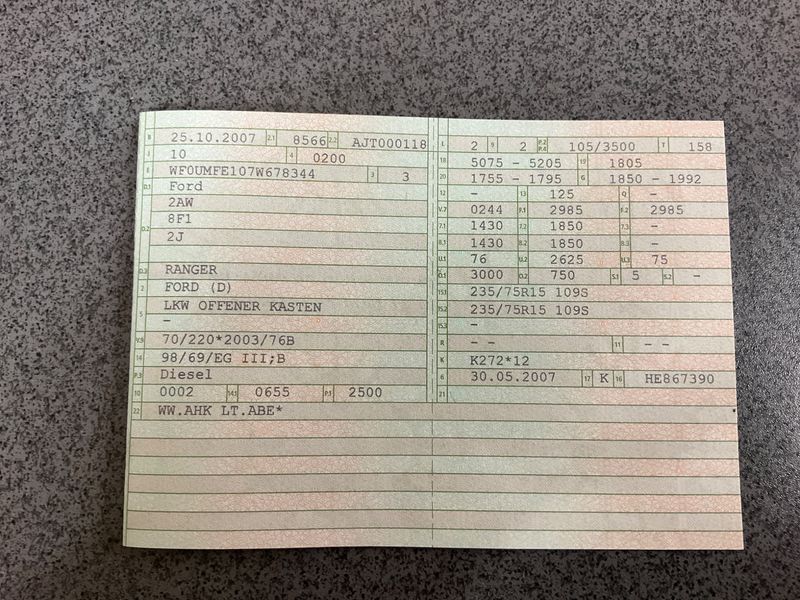 B 25.10.2007 2.1 8566 2.2 AJT000118
J 10 4 0200
E WF0UMFE107W678344 3 3
D.1 Ford
2AW
D.2 8F1
2J
D.3 RANGER
2 FORD (D)
5 LKW OFFENER KASTEN
-
V.9 70/220*2003/76B
14 98/69/EG III;B
P.3 Diesel
10 0002 14.1 0655 P.1 2500
22 WW.AHK LT.ABE*
L 2 9 2 P.2 P.4 105/3500 T 158
18 5075 - 5205 19 1805
20 1755 - 1795 G 1850 - 1992
12 - 13 125 Q -
V.7 0244 F.1 2985 F.2 2985
7.1 1430 7.2 1850 7.3 -
8.1 1430 8.2 1850 8.3 -
U.1 76 U.2 2625 U.3 75
O.1 3000 O.2 750 S.1 5 S.2 -
15.1 235/75R15 109S
15.2 235/75R15 109S
15.3 -
R - - 11 - -
K K272*12
6 30.05.2007 17 K 16 HE867390
21